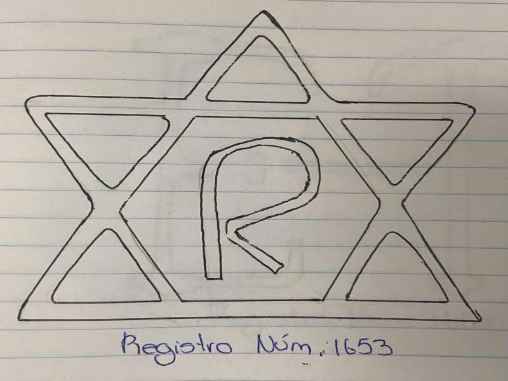 R
Registro Núm. 1653